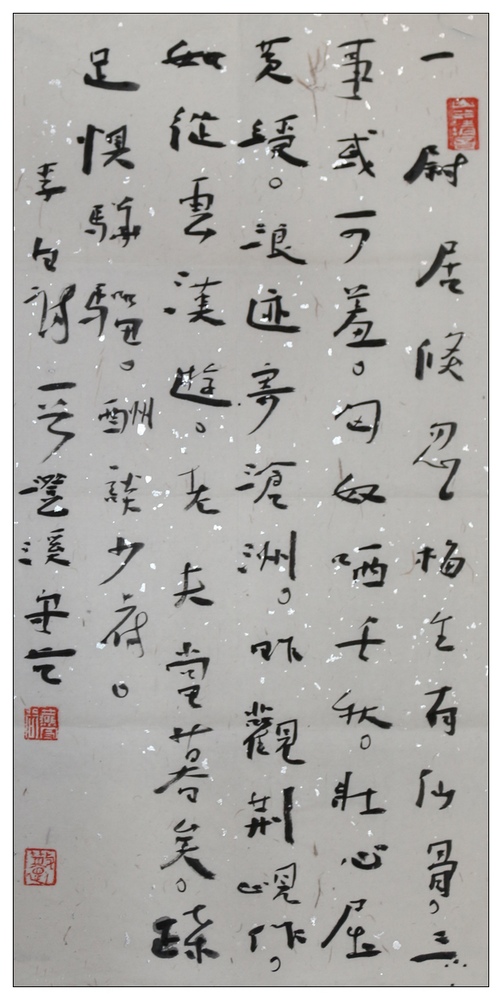 一尉居倏忽梅生有仙骨。三
事或可羞。匈奴哂千秋。壯心屈
黃綬。浪迹寄滄洲。昨觀荊峴作。
如從雲漢遊。老夫當暮矣。蹀
足懼驊騮。酬談少府。
李白詩一首溪